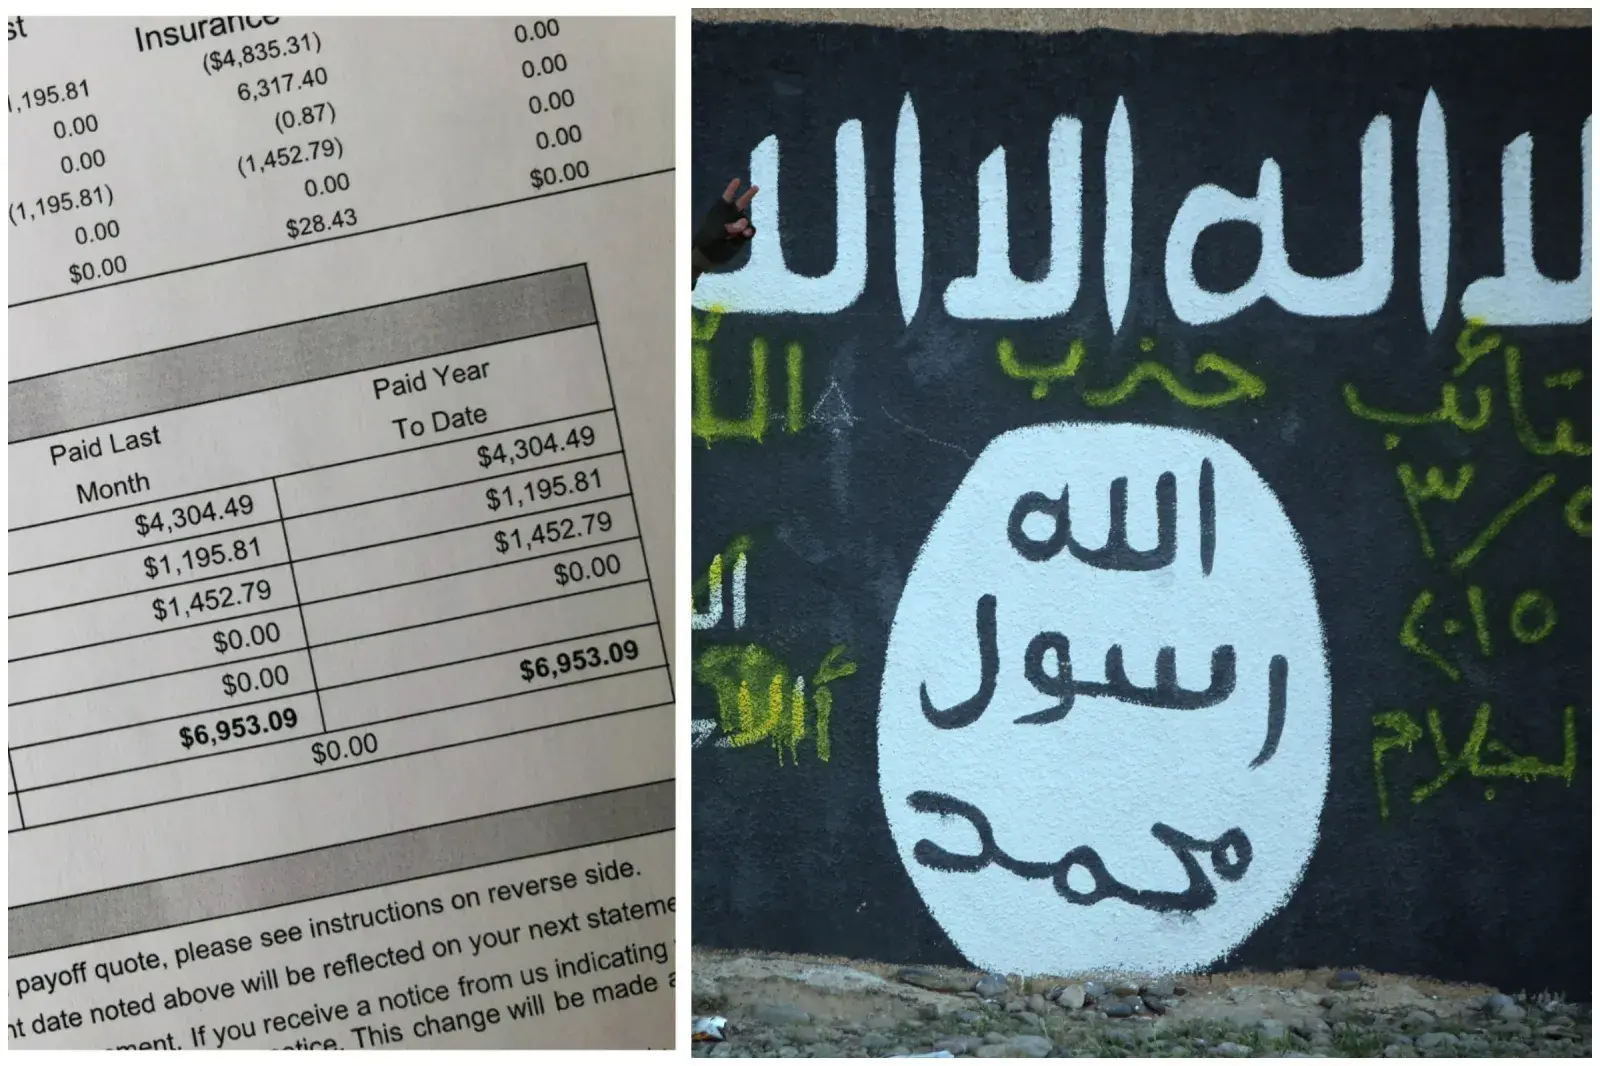 st Insurance
($4,835.31) 0.00
1,195.81 6,317.40 0.00
0.00 (0.87) 0.00
0.00 (1,452.79) 0.00
(1,195.81) 0.00 $0.00
0.00 $28.43
$0.00
Paid Last Month Paid Year To Date
$4,304.49 $4,304.49
$1,195.81 $1,195.81
$1,452.79 $1,452.79
$0.00 $0.00
$0.00
$6,953.09 $6,953.09
$0.00
payoff quote, please see instructions on reverse side.
date noted above will be reflected on your next
If you receive a notice from us indicating
This change will be made
لا اله الا الله
حزب
الله
رسول
محمد
٢٠١٥